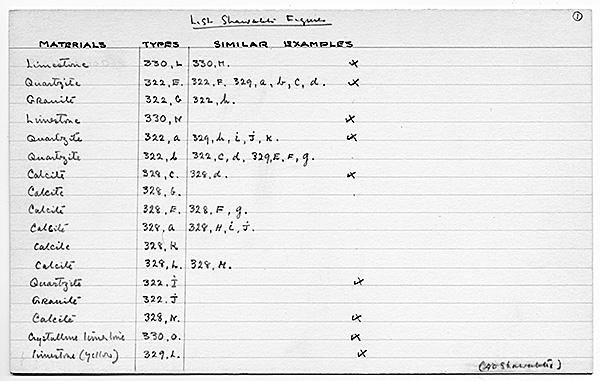 List Shawabti Figures
①
MATERIALS TYPES SIMILAR EXAMPLES
Limestone 330, L 330, M. ×
Quartzite 322, E. 322, F. 329, a, b, c, d. ×
Granite 322, G 322, h.
Limestone 330, N ×
Quartzite 322, a 329, h, i, j, K. ×
Quartzite 322, b 322, C, d, 329, E, F, g.
Calcite 328, C. 328, d. ×
Calcite 328, B.
Calcite 328, E. 328, F, g.
Calcite 328, a 328, H, i, J.
Calcite 328, K
Calcite 328, L. 328, M.
Quartzite 322, I ×
Granite 322, J
Calcite 328, N. ×
Crystalline limestone 330, O. ×
Limestone (yellow) 329, L. ×
(40 Shawabtis)